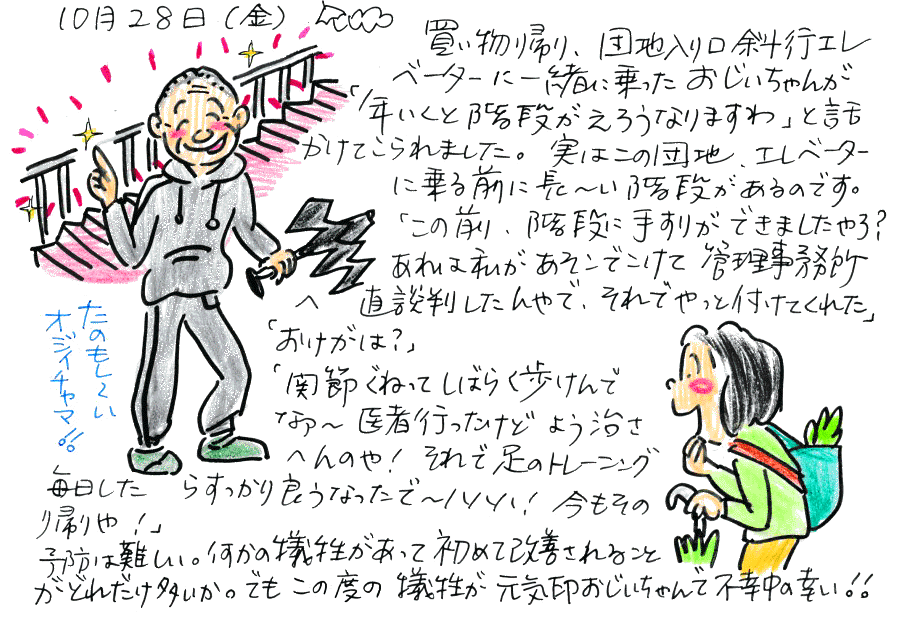 10月28日(金)
買い物帰り、団地入り口斜行エレ
ベーターに一緒に乗ったおじいちゃんが
「年いくと階段がえろうなりますわ」と話
かけてこられました。実はこの団地、エレベーター
に乗る前に長〜い階段があるのです。
「この前、階段に手すりができましたやろ?
あれは私があそこでこけて管理事務所
へ直談判したんやで、それでやっと付けてくれた」
「おけがは?」
「関節ぐねってしばらく歩けんで
なぁ〜医者行ったけどよう治さ
へんのや!それで足のトレーニング
毎日したらすっかり良うなったで〜ハハハ!今もその
帰りや!」
予防は難しい。何かの犠牲があって初めて改善されること
がどれだけ多いか。でもこの度の犠牲が元気印おじいちゃんで不幸中の幸い!!
たのもし〜い
オジイチャマ!!